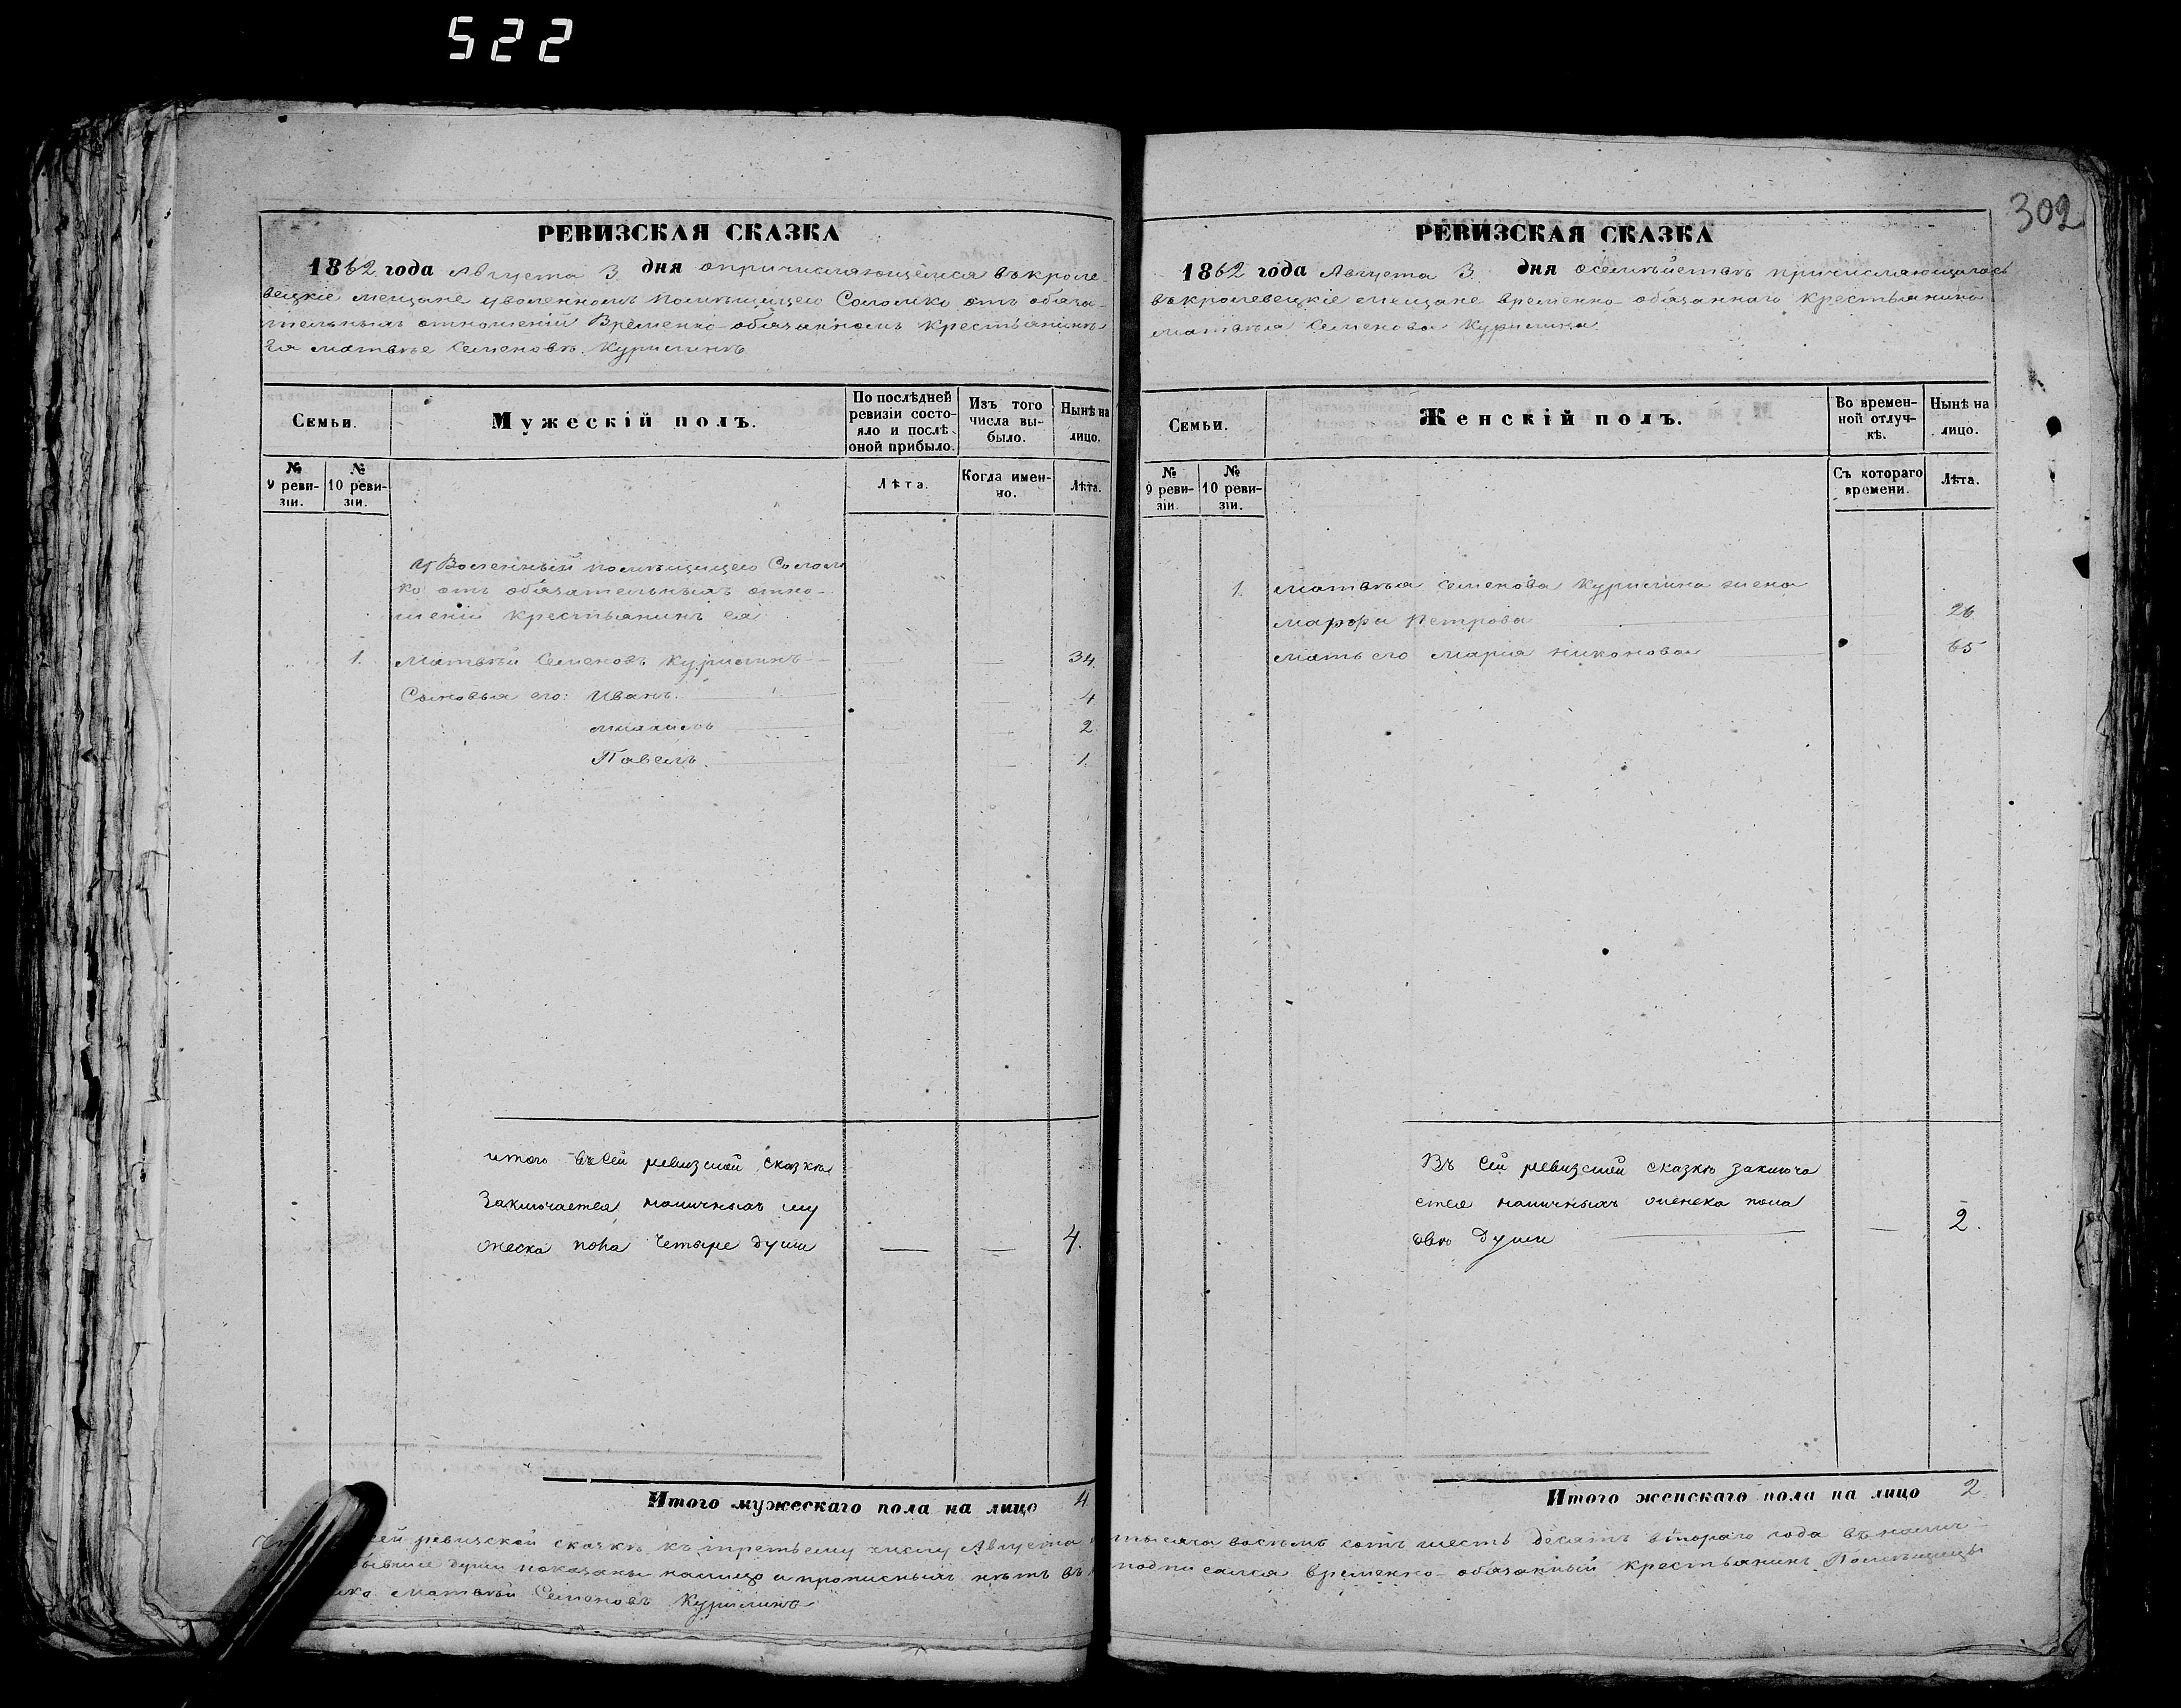 522
302
РЕВИЗСКАЯ СКАЗКА
1862 года Августа 3 дня опричисляющемся въ кроле-
вецкіе мещане уволенномъ помѣщицею Соломко отъ обяза-
тельныхъ отношеній Временно-обязанномъ крестьянинѣ
Матвѣе Семеновѣ Курилинѣ
Семьи.
Мужескій полъ.
По послѣдней ревизіи состо-
яло и послѣ оной прибыло.
Изъ того числа вы-
было.
Нынѣ на лицо.
№ 9 реви-
зіи.
№ 10 реви-
зіи.
Лѣта.
Когда имен-
но.
Лѣта.
Уволенный помѣщицею Солом
ко отъ обязательныхъ отно-
шеній крестьянинъ ея
1. Матвѣй Семеновъ Курилинъ — — 34.
Сыновья его: Иванъ. — 4
Михаилъ — 2
Павелъ. — 1.
итого въ сей ревизской сказкѣ
Заключается наличныхъ му
жеска пола Четыре души — — 4.
Итого мужескаго пола на лицо 4
РЕВИЗСКАЯ СКАЗКА
1862 года Августа 3 дня осемѣйствѣ причисляющагось
въ кролевецкіе мещане временно-обязаннаго крестьянина
Матвѣя Семенова Курилина
Семьи.
Женскій полъ.
Во времен-
ной отлуч-
кѣ.
Нынѣ на лицо.
№ 9 реви-
зіи.
№ 10 реви-
зіи.
Съ котораго времени.
Лѣта.
1. Матвѣя Семенова Курилина жена
Марфа Петрова 26
мать его Марія Никонова 65
Въ сей ревизской сказкѣ заключа
ется наличныхъ женска пола
двѣ души — 2.
Итого женскаго пола на лицо 2
сей ревизской сказкѣ къ третьему числу Августа тысяча восемь сотъ шесть десятъ втораго года въ налич-
бывшіе души показаны налицо и прописныхъ нѣтъ въ подписался временно-обязанный крестьянинъ Помѣщицы
Матвѣй Семеновъ Курилинъ